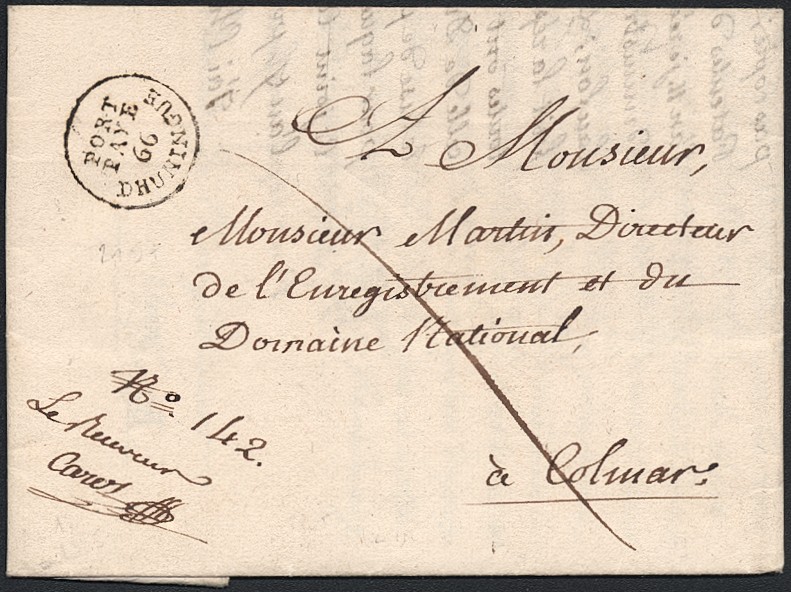 PORT
PAYE
66
DHUNINGUE
A Monsieur,
Monsieur Martin, Directeur
de l'Enregistrement et du
Domaine National,
No. 142.
Le Receveur
à Colmar.